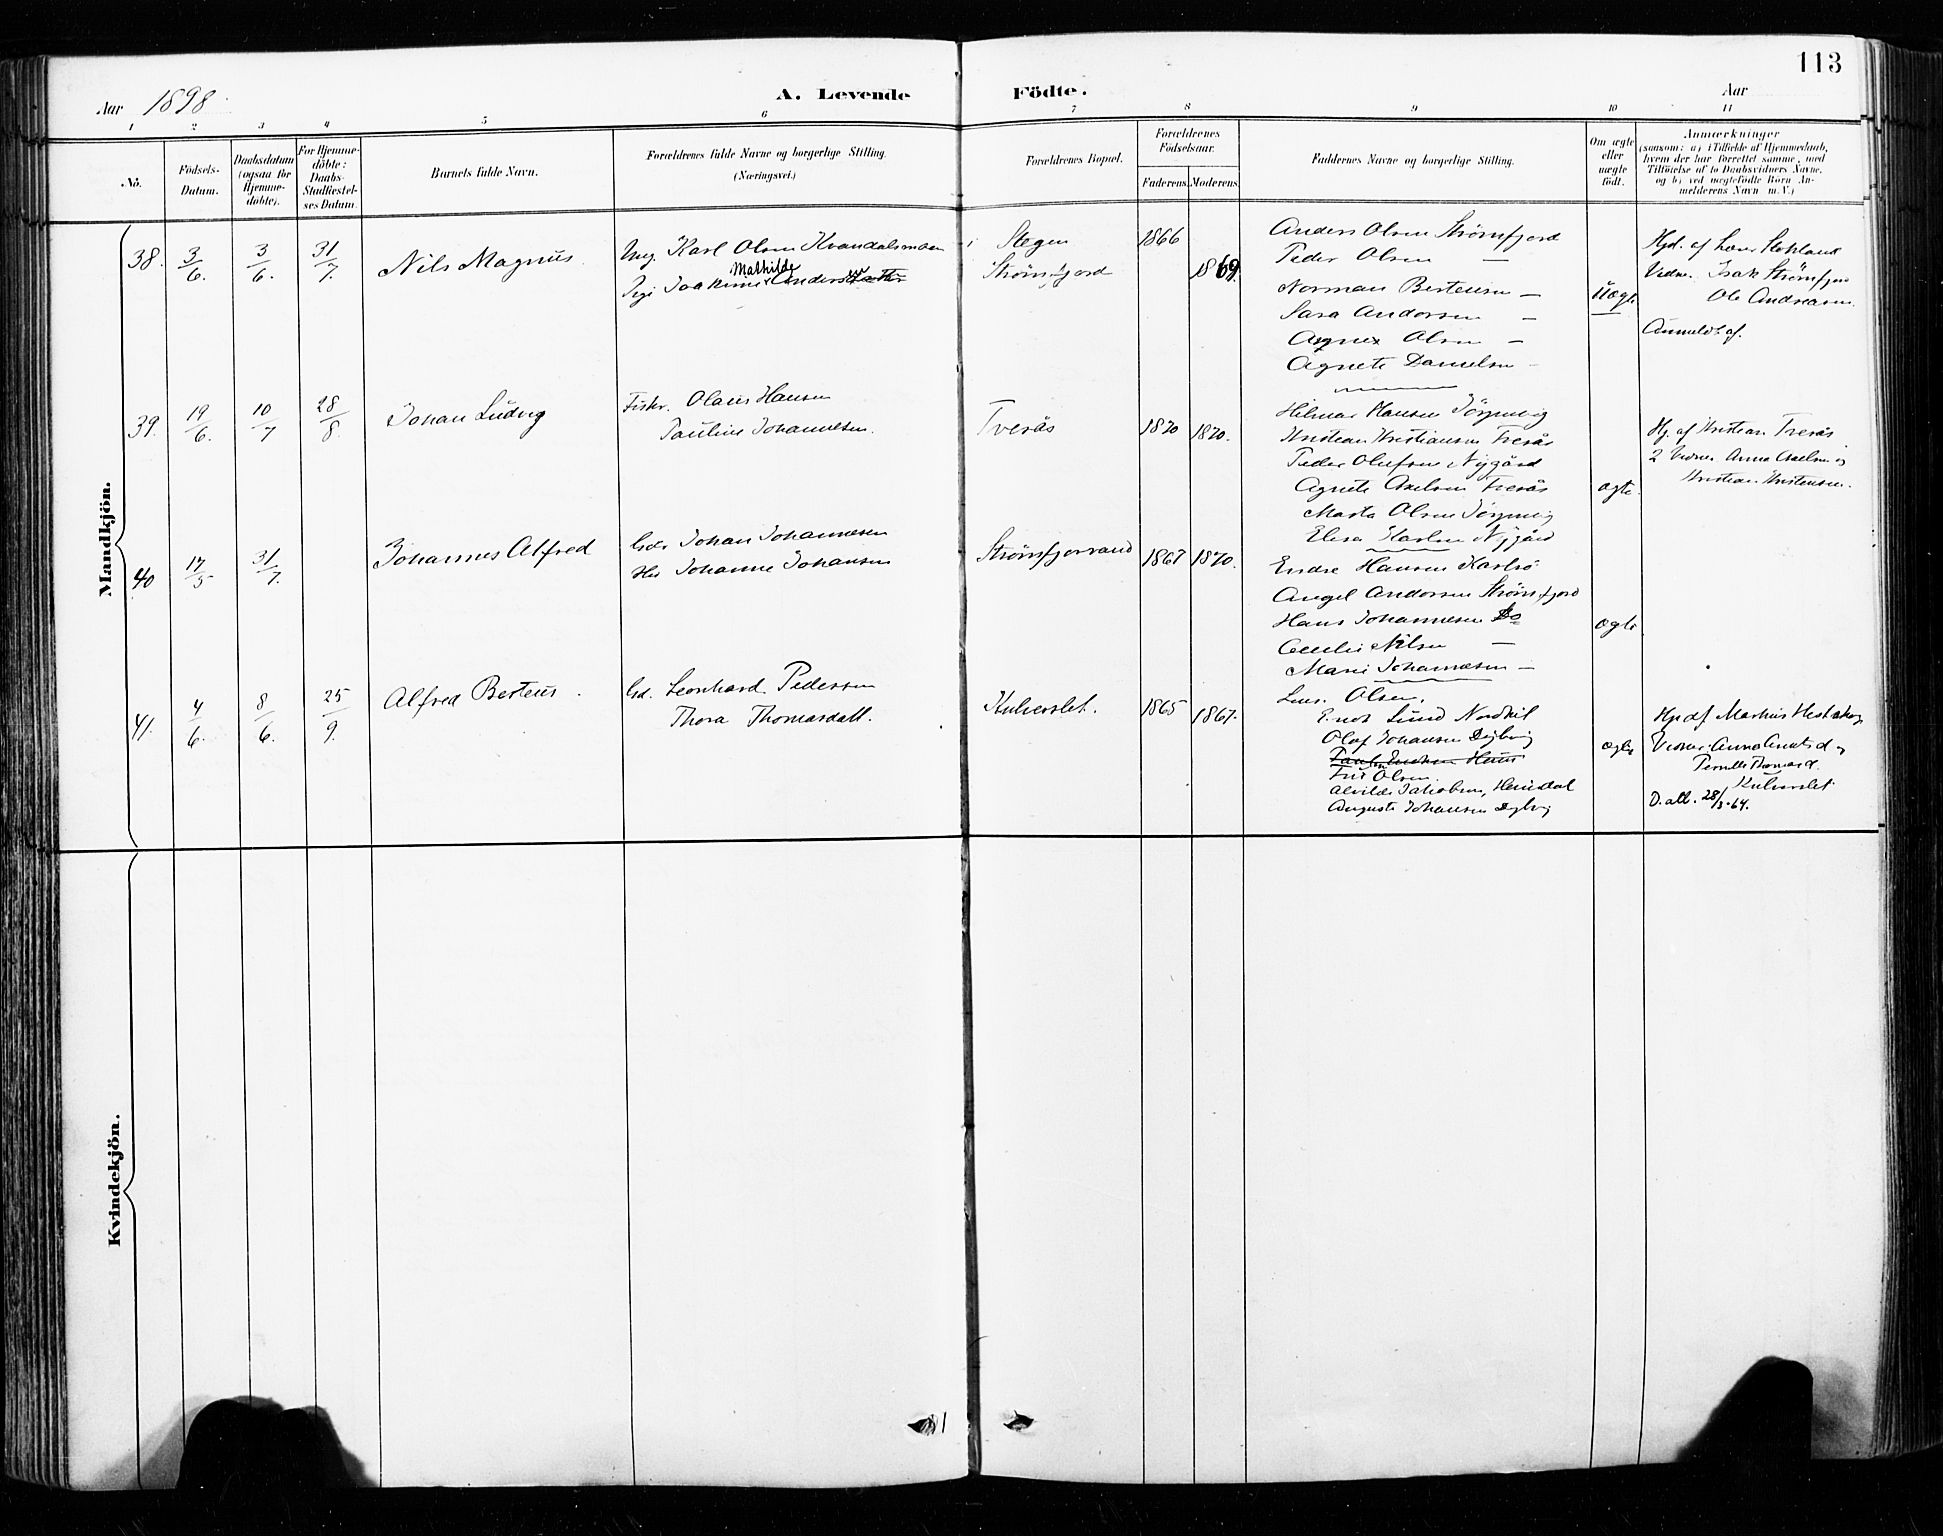 113
Aar 1898.
A. Levende Födte.
Aar
1 2 3 4 5 6 7 8 9 10 11
Nô.
Födsels-
Datum.
Daabsdatum
(ogsaa for
Hjemme-
döbte).
For Hjemme-
döbte:
Daabs-
Stadfæstel-
ses Datum.
Barnets fulde Navn.
Forældrenes fulde Navne og borgerlige Stilling.
(Næringsvei.)
Forældrenes Bopæl.
Forældrenes
Födselsaar.
Faderens. Moderens.
Faddernes Navne og borgerlige Stilling.
Om ægte
eller
uægte
födt.
Anmærkninger
(saasom: a) i Tilfælde af Hjemmedaab,
hvem der har forrettet samme, med
Tilföielse af to Daabsvidners Navne,
og b) ved uægtefödte Börn An-
melderens Navn m. V.)
Mandkjön.
38. 3/6. 3/6. 31/7. Nils Magnus
Ung. Karl Olsen Kvandalsmoen
Pige Joakime Mathilde Anders
i Stegen
Strömsfjord
1866
1869.
Anders Olsen Strömsfjord
Peder Olsen —
Norman Bertensen —
Sara Andorsen —
Agnes Olsen —
Agnete Danielsen —
Uægte
Hjd. af Lars Stokland
Vidne. Isak Strömsfjord
Ole Andreasen.
Anmeldt af.
39. 19/6. 10/7 28/8. Johan Ludvig
Fisker. Olaus Hansen
Pauline Johannesen.
Tverås
1870 1870.
Hilmar Hansen
Kristian Kristiansen Tverås
Peder Olufsen Nygård
Agnete Axelsen Tverås
Marta Olsen
Elisa Karlsen Nygård
ægte.
Hj. af Kristian Tverås
2 Vidner Anna Axelsen og
Kristian Kristensen.
40 17/5 31/7. Johannes Alfred
Gdr Johan Johannesen
Hu Johanne Johansen
Strömsfjorvand
1867 1870.
Endre Hansen Karlsö
Angel Andorsen Strömsfjord
Hans Johannesen Do
Cecilie Nilsen —
Marie Johannesen —
ægte
41. 4/6. 8/6. 25/9. Alfred Berteus.
Gd. Leonhard Pedersen
Thora Thomasdatt.
Kulverslet.
1865 1867.
Lars. Olsen.
Enok Lund Nordkil
Olaf Johansen
Fru Olsen.
Alvilde Jakobsen, Heinedal
Auguste Johansen
ægte
Hjd af Markus
Vidner. Anna Arntsd og
Pernille Thomasd.
Kulverslet
D.att. 28/3-64.
Kvindekjön.